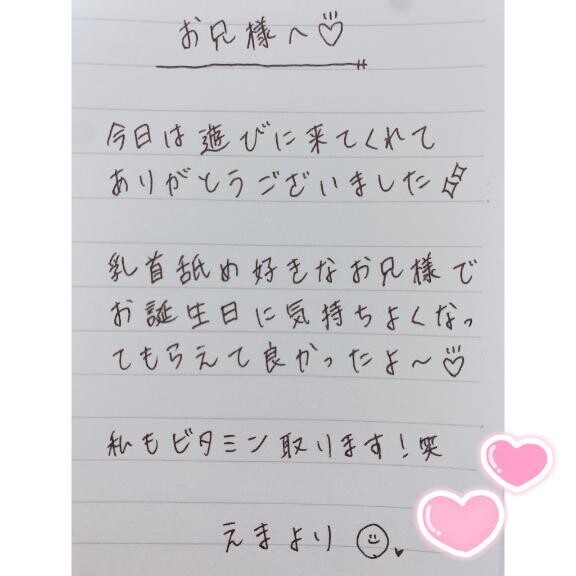 お兄様へ♡
今日は遊びに来てくれて
ありがとうございました
乳首舐め好きなお兄様で
お誕生日に気持ちよくなっ
てもらえて良かったよ〜♡
私もビタミン取ります！笑
えまより